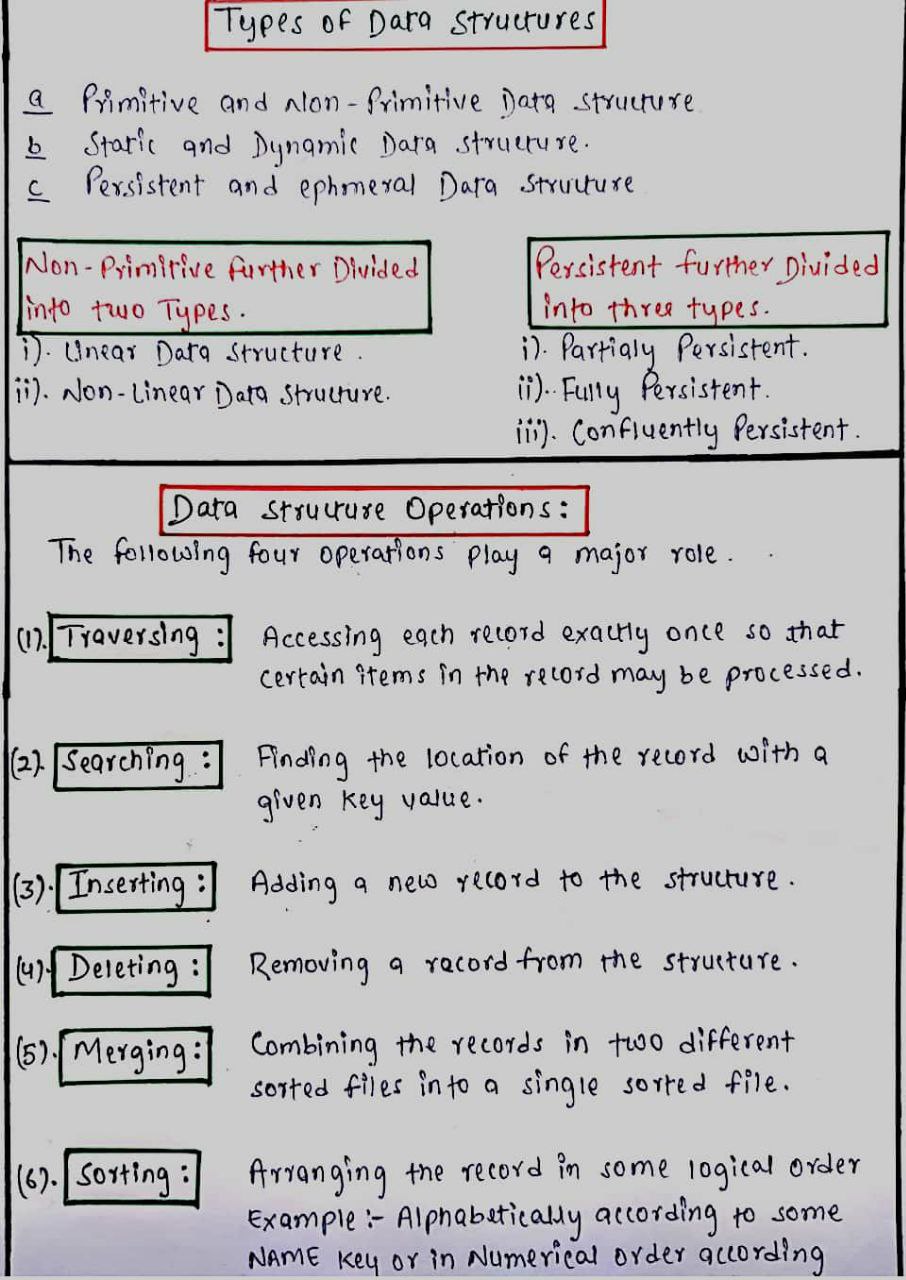 Types of Data Structures
a Primitive and Non-Primitive Data structure
b Static and Dynamic Data structure.
c Persistent and ephmeral Data Structure
Non-Primitive further Divided
into two Types.
i). Linear Data structure.
ii). Non-Linear Data structure.
Persistent further Divided
into three types.
i). Partialy Persistent.
ii). Fully Persistent.
iii). Confluently Persistent.
Data structure Operations:
The following four operations play a major role.
(1). Traversing : Accessing each record exactly once so that
certain items in the record may be processed.
(2). Searching : Finding the location of the record with a
given key value.
(3). Inserting : Adding a new record to the structure.
(4). Deleting : Removing a record from the structure.
(5). Merging : Combining the records in two different
sorted files into a single sorted file.
(6). Sorting : Arranging the record in some logical order
Example :- Alphabetically according to some
NAME key or in Numerical order according